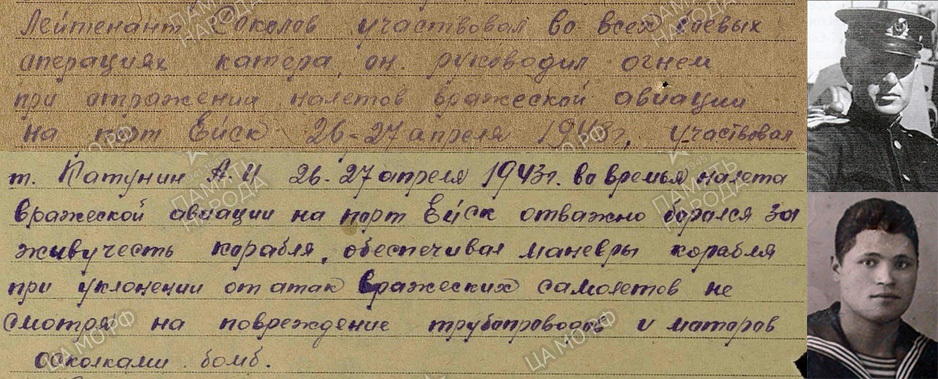 Лейтенант Соколов участвовал во всех боевых
операциях катера, он руководил огнем
при отражении налетов вражеской авиации
на порт Ейск 26-27 апреля 1943г, участвовал
т. Катунин А.И 26-27 апреля 1943г. во времья налета
вражеской авиации на порт Ейск отважно борался за
живучесть корабля, обеспечивал маневры корабля
при уклонении от атак вражеских самолетов не
смотря на повреждение трубопроводов и маторов
осколками бомб.
ПАМЯТЬ НАРОДА
ЦАМО.РФ